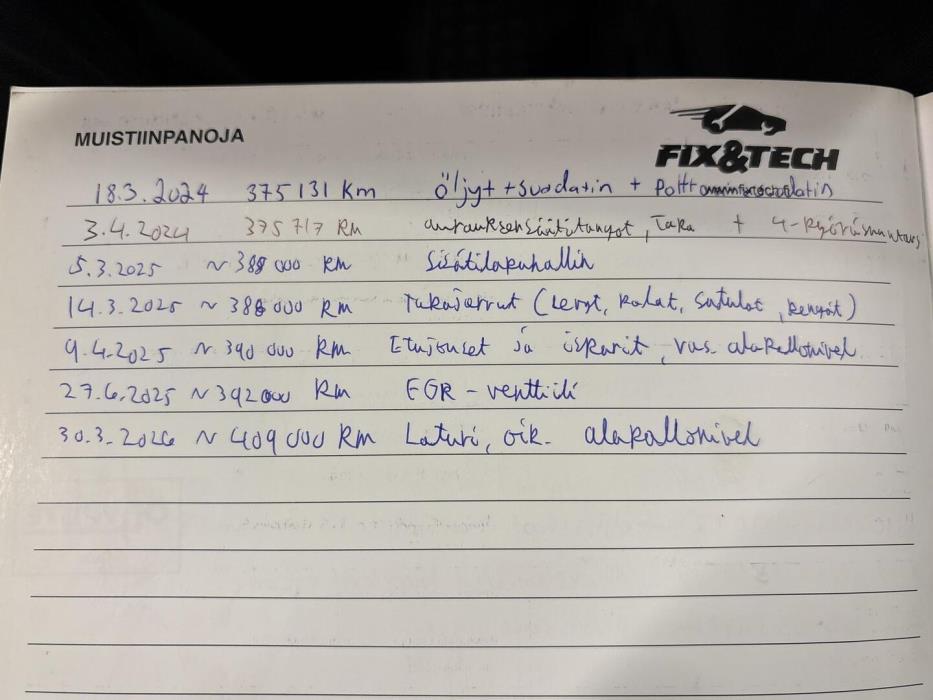 MUISTIINPANOJA
FIX&TECH
18.3.2024 375131 Km Öljyt + suodatin + Poltt suodatin
3.4.2024 375717 km aurauksensäätötangot, Taka + 4-pyöräsuuntaus
5.3.2025 ~ 388 000 km Sisätilapuhallin
14.3.2025 ~ 388 000 km Takajarrut (levyt, palat, satulat, kengät)
9.4.2025 ~ 390 000 km Etujouset ja iskarit, vas. alapallonivel
27.6.2025 ~ 392000 km EGR-venttiili
30.3.2026 ~ 409 000 km Laturi, oik. alapallonivel